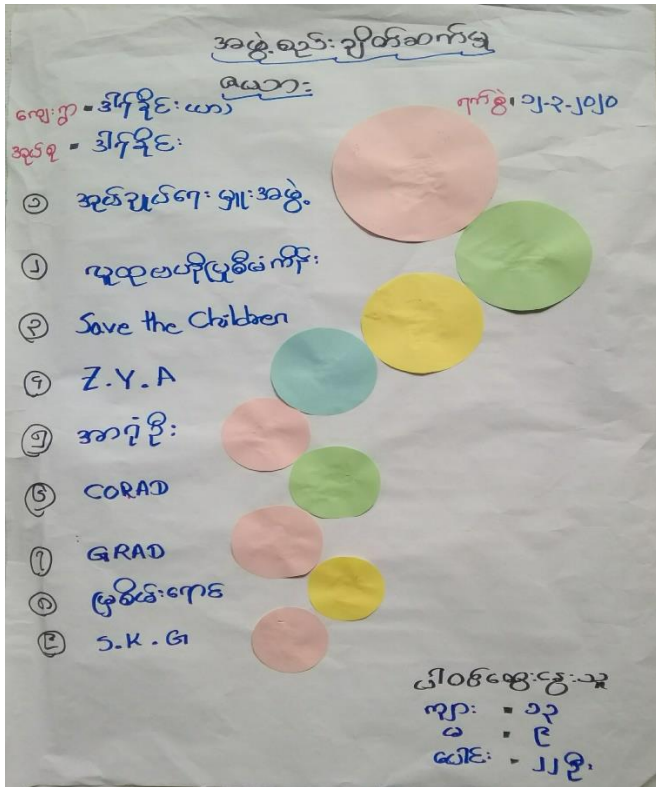 အဖွဲ့အစည်းချိတ်ဆက်မှု
ဇယား
ကျေးရွာ = ဒါန်ခိုင်းယာ
ရက်စွဲ၊ ၁၂-၃-၂၀၂၀
အုပ်စု = ဒါန်ခိုင်း
၁ အုပ်ချုပ်ရေးမှူးအဖွဲ့
၂ လူထုဗဟိုပြုစီမံကိန်း
၃ Save the Children
၄ Z.Y.A
၅
၆ CORAD
၇ GRAD
၈ မြစိမ်းရောင်
၉ S.K.G
ပါဝင်ဆွေးနွေးသူ
ကျား = ၁၃
မ = ၉
ပေါင်း = ၂၂ ဦး